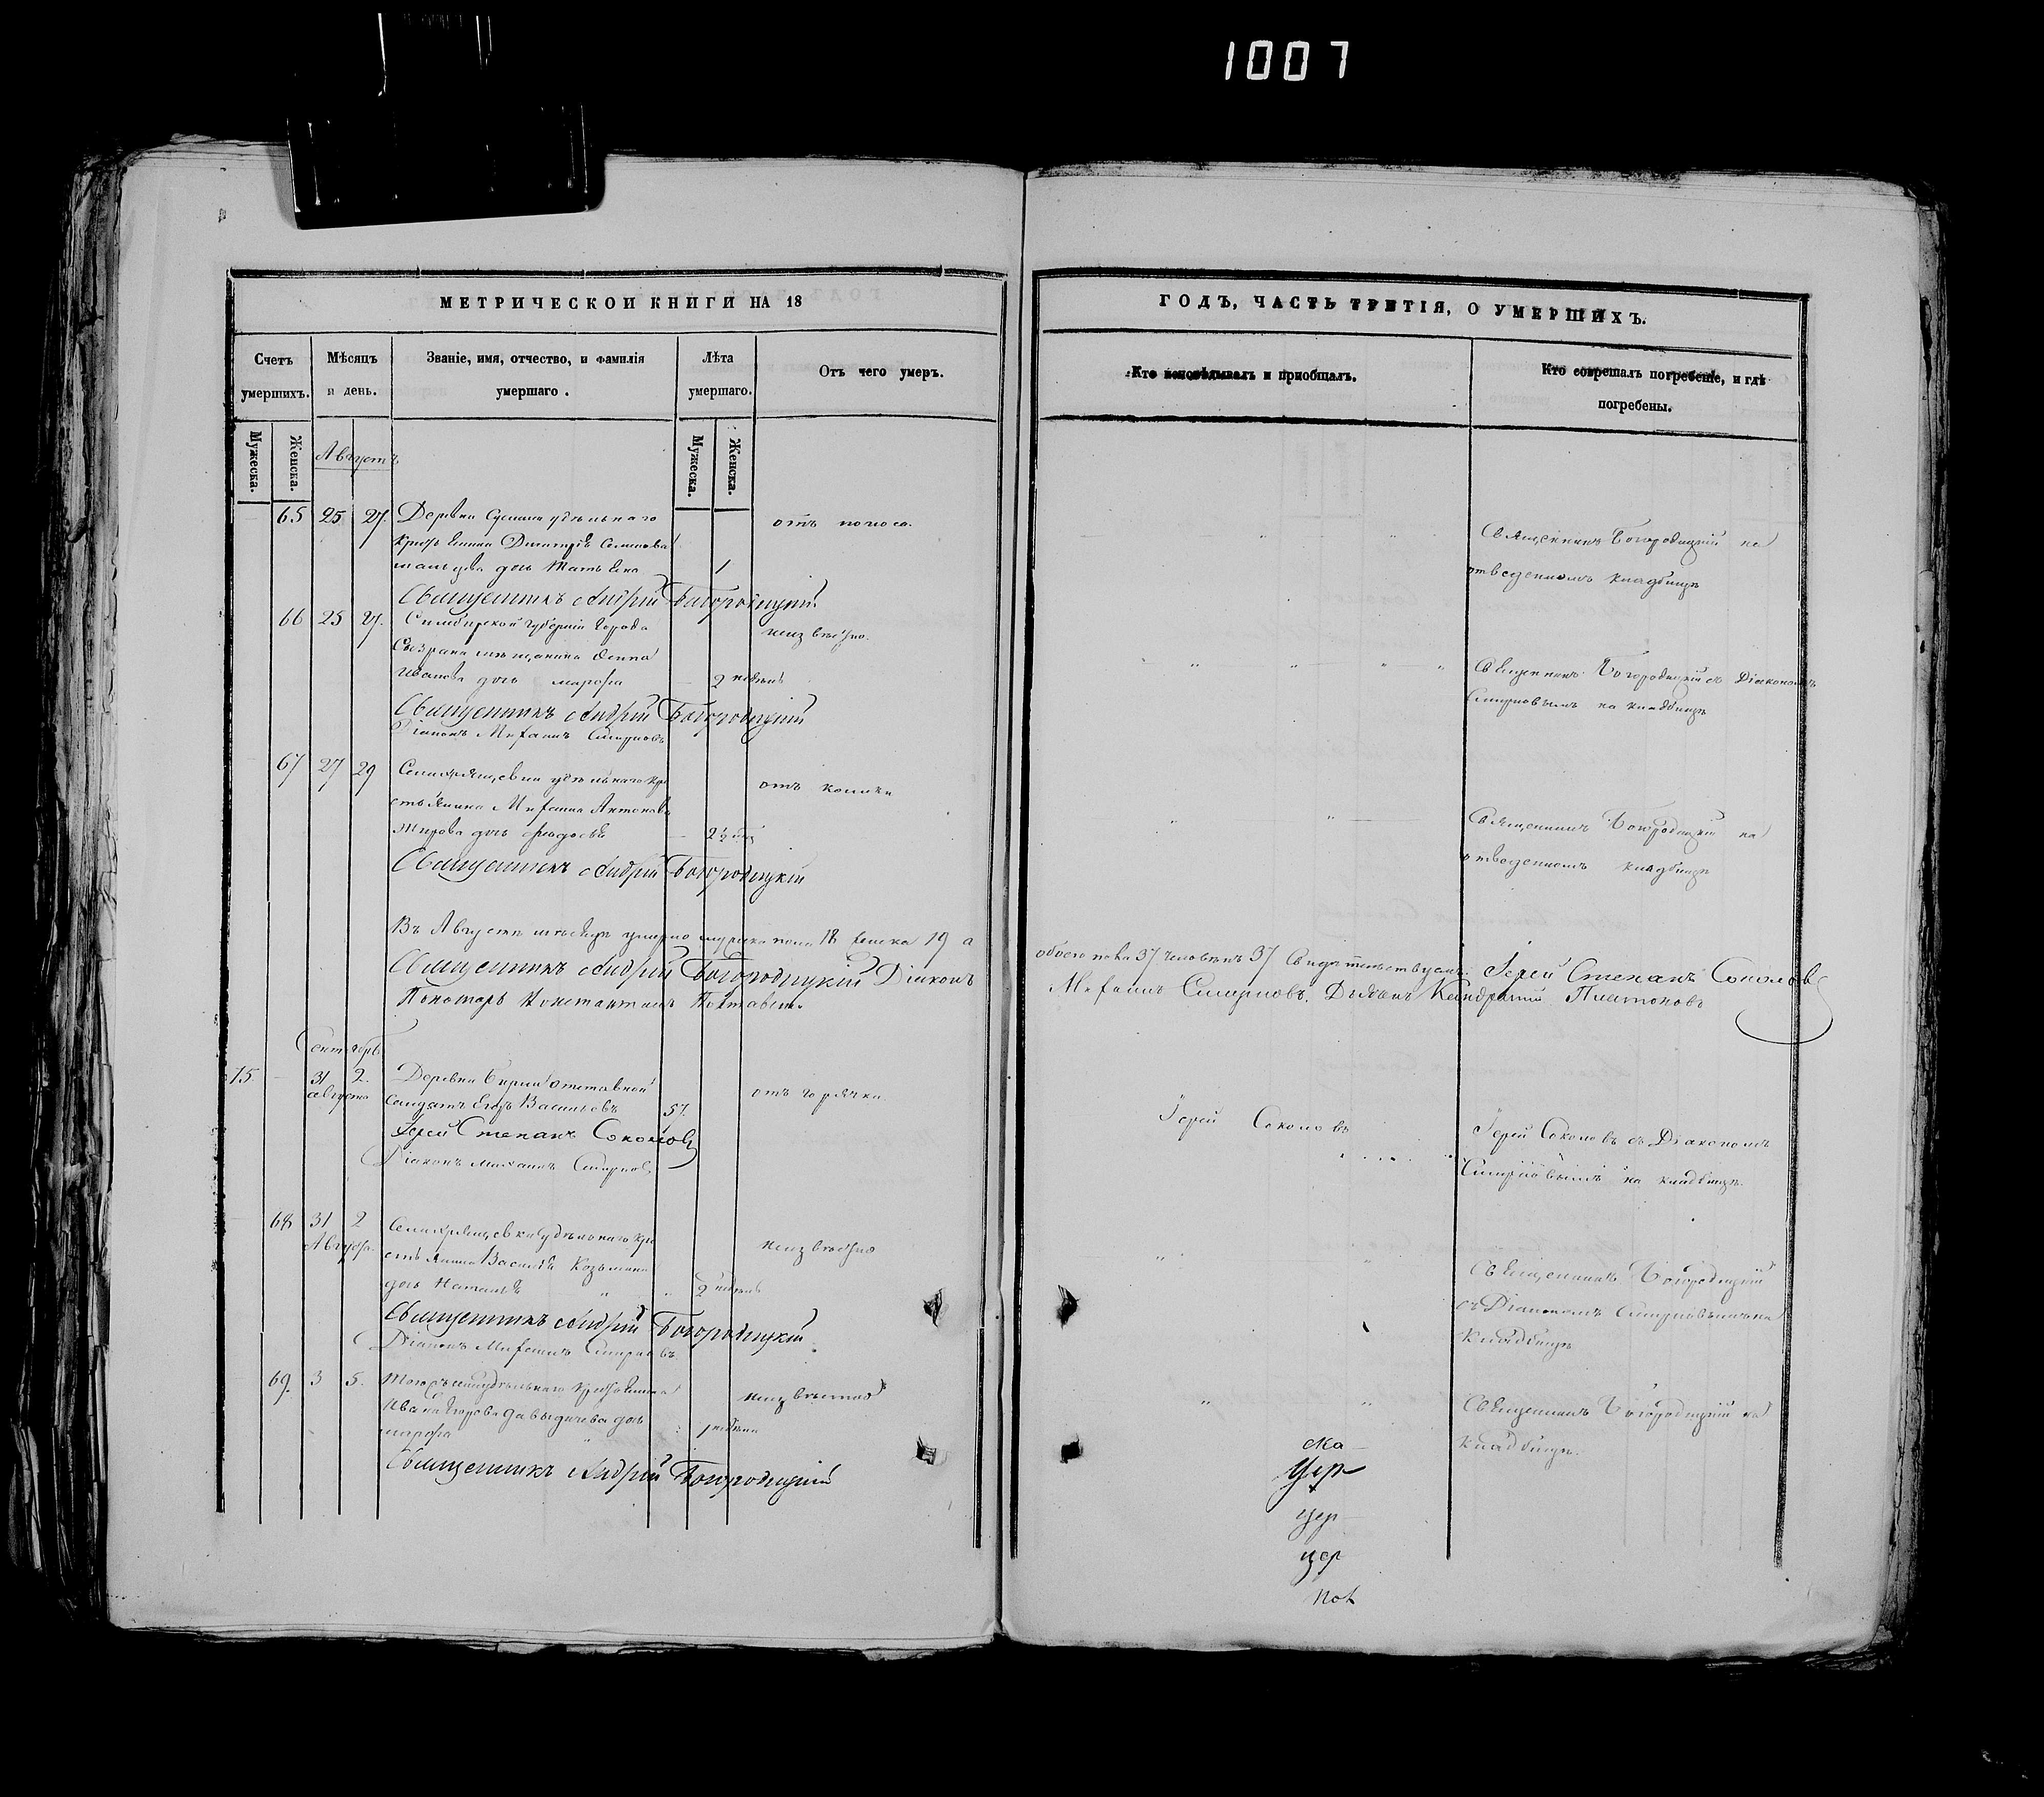 1007
МЕТРИЧЕСКОИ КНИГИ НА 18
Счетъ умершихъ.
Мѣсяцъ и день.
Званіе, имя, отчество, и фамилія умершаго.
Лѣта умершаго.
Отъ чего умеръ.
Мужеска.
Женска.
Мужеска.
Женска.
Августъ
65 25 27. Деревни удѣльнаго отъ поноса.
крестьянина Дмитрія Семенова
дочь Татьяна 1
Священникъ Андрей Богородицкій
66 25 27. Симбирской губерніи города неизвѣстно.
Сызрана мѣщанина
Иванова дочь марѳа 2 недѣль
Священникъ Андрей Богородицкій
Діаконъ Михаилъ Смирновъ
67 27 29 удѣльнаго кре отъ колики
стьянина Михаила Антонова
дочь 2½
Священникъ Андрей Богородицкій
Въ Августѣ мѣсяцѣ умерло мужеска пола 18 женска 19 а
Священникъ Андрей Богородицкій Діаконъ
Пономарь Константинъ
Сентябрь
15. 31 2. Деревни отставной отъ горячки
августа солдатъ Егоръ Васильевъ 57.
Іерей Степанъ Соколовъ
Діаконъ михаилъ Смирновъ
68 31 2 удѣльнаго кре неизвѣстно
Августа. стьянина Василья Козьмина
дочь Наталья 2 недѣль
Священникъ Андрей Богородицкій
Діаконъ Михаилъ Смирновъ
69. 3 5. удѣльнаго крестьянина неизвѣстно
Ивана Егорова дочь
марѳа
Священникъ Андрей Богородицкій
ГОДЪ, ЧАСТЬ ТРЕТІЯ, О УМЕРШИХЪ.
Кто исповѣдывалъ и пріобщалъ.
Кто совершалъ погребеніе, и гдѣ погребены.
Священникъ Богородицкій на
отведенномъ кладбищѣ
Священникъ Богородицкій съ Діакономъ
Смирновымъ на кладбищѣ
Священникъ Богородицкій на
отведенномъ кладбищѣ
обоего пола 37 человѣкъ 37 Свидѣтельствуемъ: Іерей Степанъ Соколовъ
Михаилъ Смирновъ. Дьячекъ Кондратій Платоновъ
Іерей Соколовъ
Іерей Соколовъ съ Діакономъ
Смирновымъ на кладбищѣ.
Священникъ Богородицкій
съ Діакономъ Смирновымъ на
Кладбищѣ
Священникъ Богородицкій на
кладбищѣ.
цер
цер